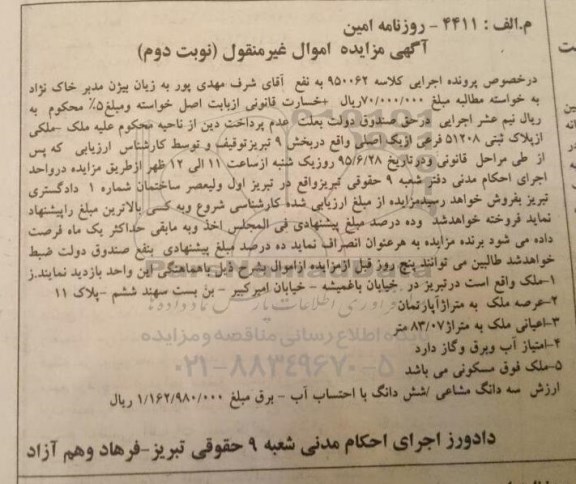 م.الف : ۴۴۱۱ - روزنامه امین
آگهی مزایده اموال غیرمنقول (نوبت دوم)
درخصوص پرونده اجرایی کلاسه ۹۵۰۰۶۲ به نفع آقای شرف مهدی پور به زیان بیژن مدبر خاک نژاد
به خواسته مطالبه مبلغ ۷۰/۰۰۰/۰۰۰ریال +خسارت قانونی ازبابت اصل خواسته ومبلغ۵٪ محکوم به
ریال نیم عشر اجرایی درحق صندوق دولت بعلت عدم پرداخت دین از ناحیه محکوم علیه ملک -ملکی
ازپلاک ثبتی ۵۱۲۰۸ فرعی ازیک اصلی واقع دربخش ۹ تبریزتوقیف و توسط کارشناس ارزیابی که پس
از طی مراحل قانونی ودرتاریخ ۹۵/۶/۲۸ روزیک شنبه ازساعت ۱۱ الی ۱۲ ظهر ازطریق مزایده درواحد
اجرای احکام مدنی دفتر شعبه ۹ حقوقی تبریزواقع در تبریز اول ولیعصر ساختمان شماره ۱ دادگستری
تبریز بفروش خواهد رسیدمزایده از مبلغ ارزیابی شده کارشناسی شروع وبه کسی بالاترین مبلغ راپیشنهاد
نماید فروخته خواهدشد وده درصد مبلغ پیشنهادی فی المجلس اخذ وبه مابقی حداکثر یک ماه فرصت
داده می شود برنده مزایده به هرعنوان انصراف نماید ده درصد مبلغ پیشنهادی بنفع صندوق دولت ضبط
خواهدشد طالبین می توانند پنج روز قبل ازمزایده ازاموال بشرح ذیل باهماهنگی این واحد بازدید نمایند.ز
۱-ملک واقع است درتبریز در خیابان باغمیشه - خیابان امیرکبیر - بن بست سهند ششم -پلاک ۱۱
۲-عرصه ملک به متراژآپارتمان
۳-اعیانی ملک به متراژ۸۳/۰۷ متر
۴-امتیاز آب وبرق وگاز دارد
۵-ملک فوق مسکونی می باشد
ارزش سه دانگ مشاعی /شش دانگ با احتساب آب - برق مبلغ ۱/۱۶۲/۹۸۰/۰۰۰ ریال
دادورز اجرای احکام مدنی شعبه ۹ حقوقی تبریز-فرهاد وهم آزاد
پایگاه اطلاع رسانی مناقصه ومزایده
۰۲۱-۸۸۳۴۹۶۷۰-۵